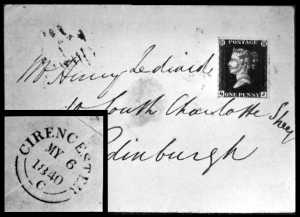 POSTAGE
ONE PENNY
Mr Henry
10 South Charlotte Street
Edinburgh
CIRENCESTER
MY 6
1840
C